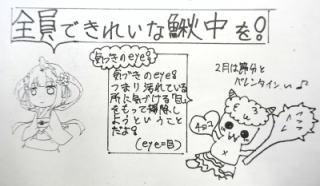 全員できれいな鰍中を!
気づきのeye!
気づきのeye!
つまり汚れている
所に気づける「目」
をもって掃除し
ようということ
だよ!
(eye=目)
2月は節分と
バレンタイン♪